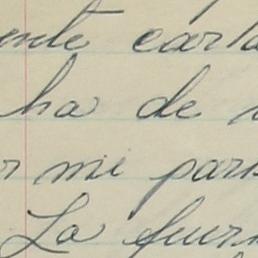 ente carta
ha de
r mi par
La fuer